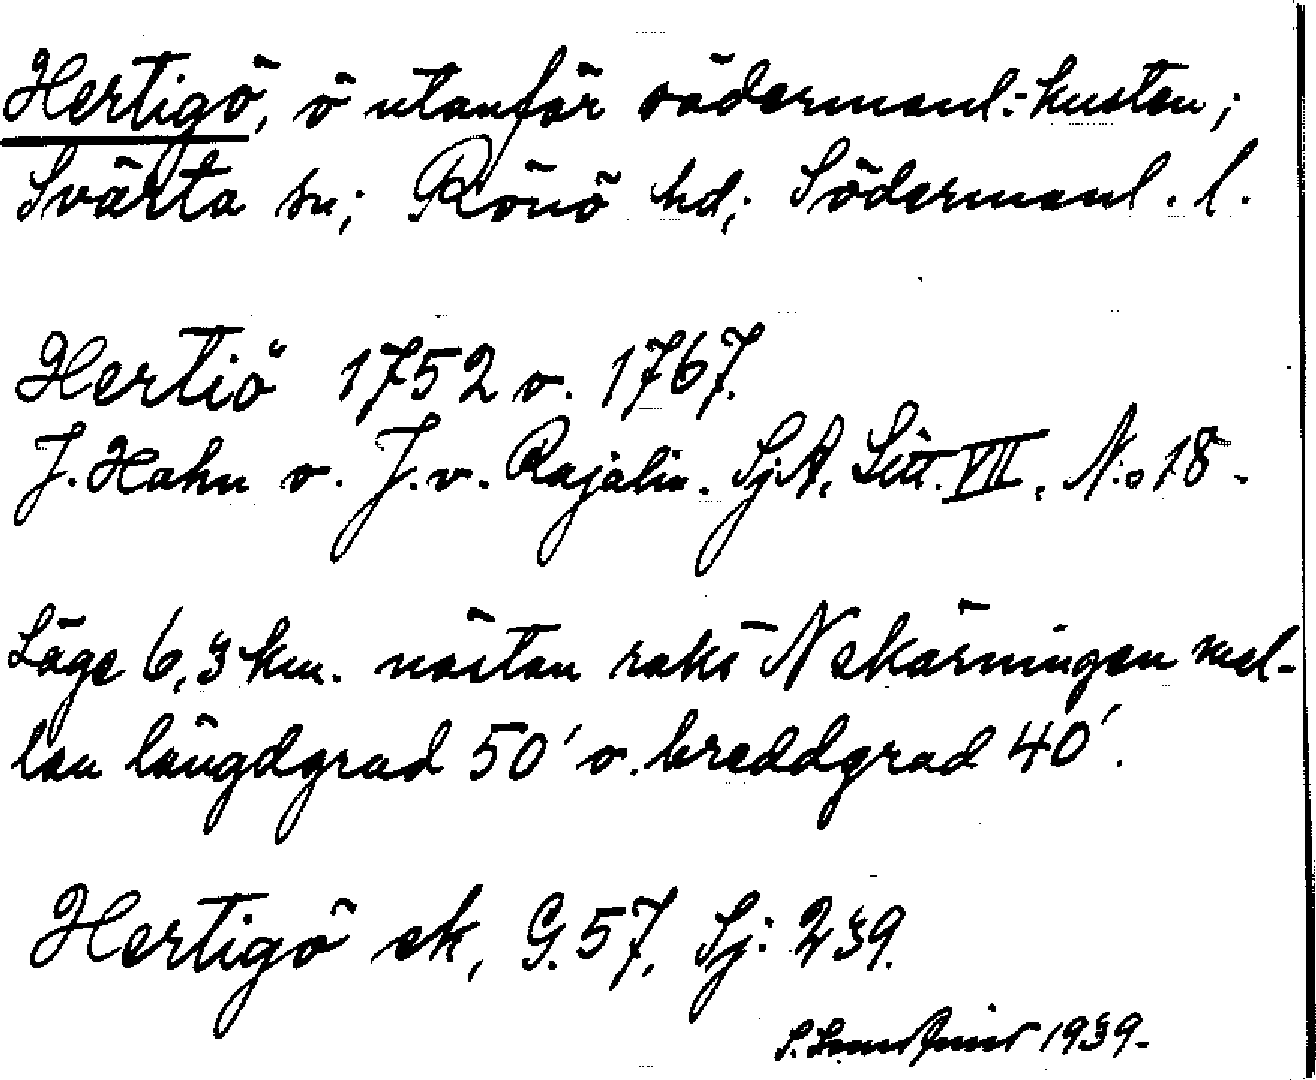 Hertigö, ö utanför södermanl. kusten;
Svärta sn; Rönö hd; Södermanl. l.
Hertiö 1752 o. 1767.
J. Hahn o. J. v. Rajalin. SjA. Litt. VII. No 18.
Läge 6,3 km. nästan rakt N skärningen mel-
lan längdgrad 50' o. breddgrad 40'.
Hertigö ek, G. 57, Sj: 239.
S. 1939.